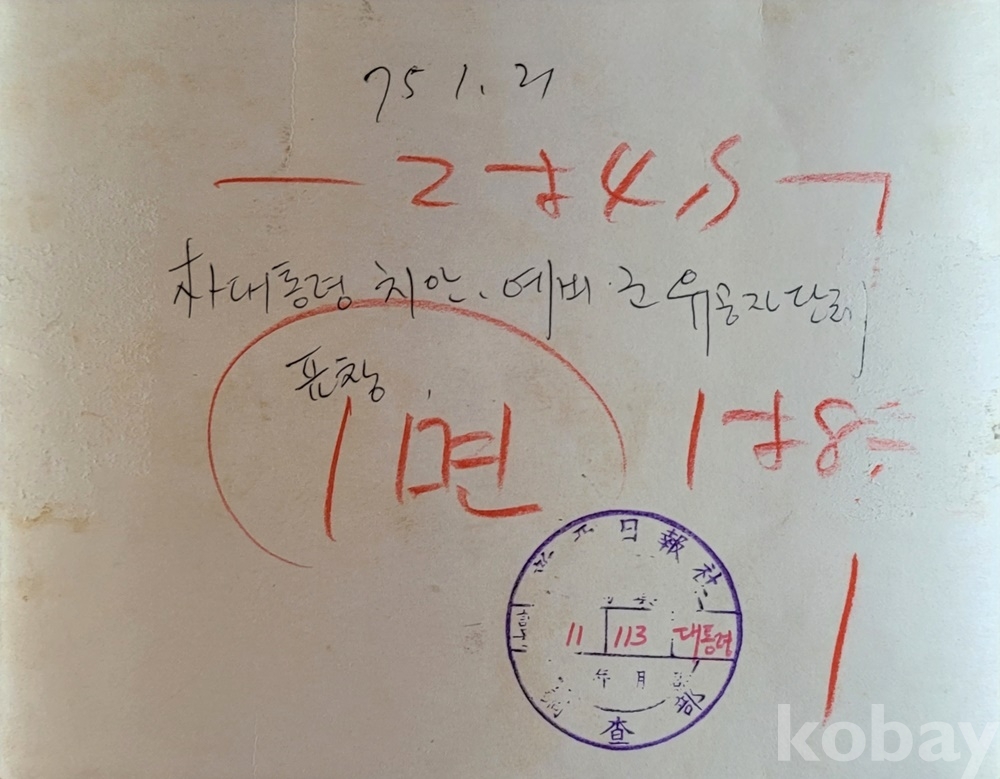 75 1. 21
2 단 4.5
차대통령 치안. 예비.군 유공자 단체
표창.
1면
1 단 8
日報社
11 113 대통령
年 月
查 部
kobay